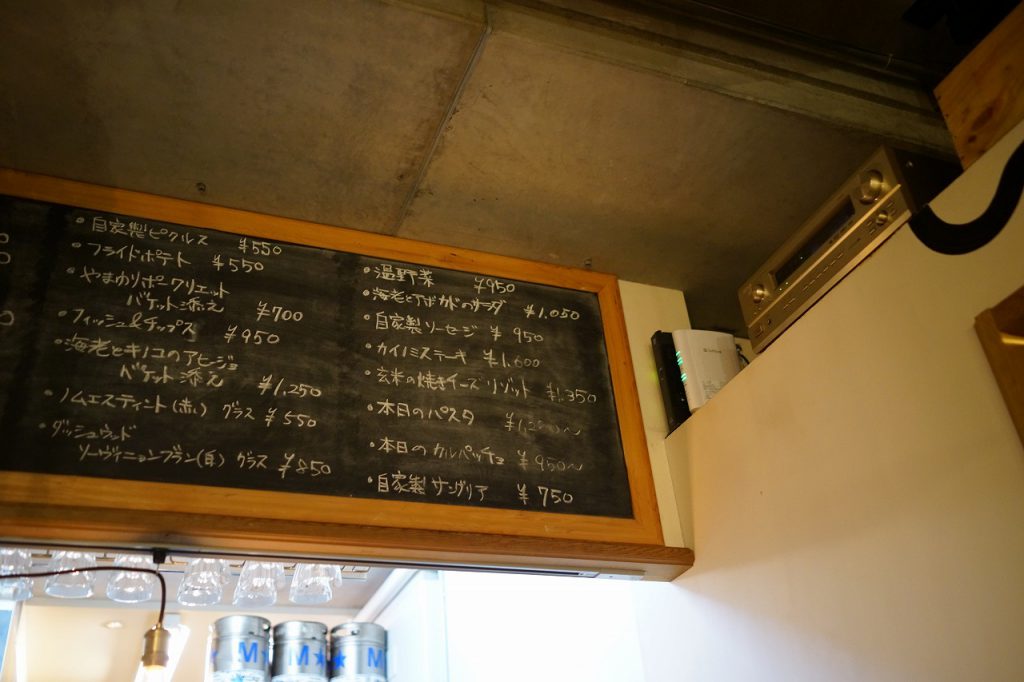 ・自家製ピクルス ¥550
・フライドポテト ¥550
・やまゆりポークリエット
バゲット添え ¥700
・フィッシュ&チップス ¥950
・海老とキノコのアヒージョ
バゲット添え ¥1,250
・ノムエスティント(赤) グラス ¥550
・ダッシュウッド
ソーヴィニョンブラン(白) グラス ¥850
・温野菜 ¥950
・海老とアボカドのサラダ ¥1,050
・自家製ソーセージ ¥950
・カイノミステーキ ¥1,600
・玄米の焼きチーズリゾット ¥1,350
・本日のパスタ ¥1,200〜
・本日のカルパッチョ ¥950〜
・自家製サングリア ¥750
M★
M★
★M